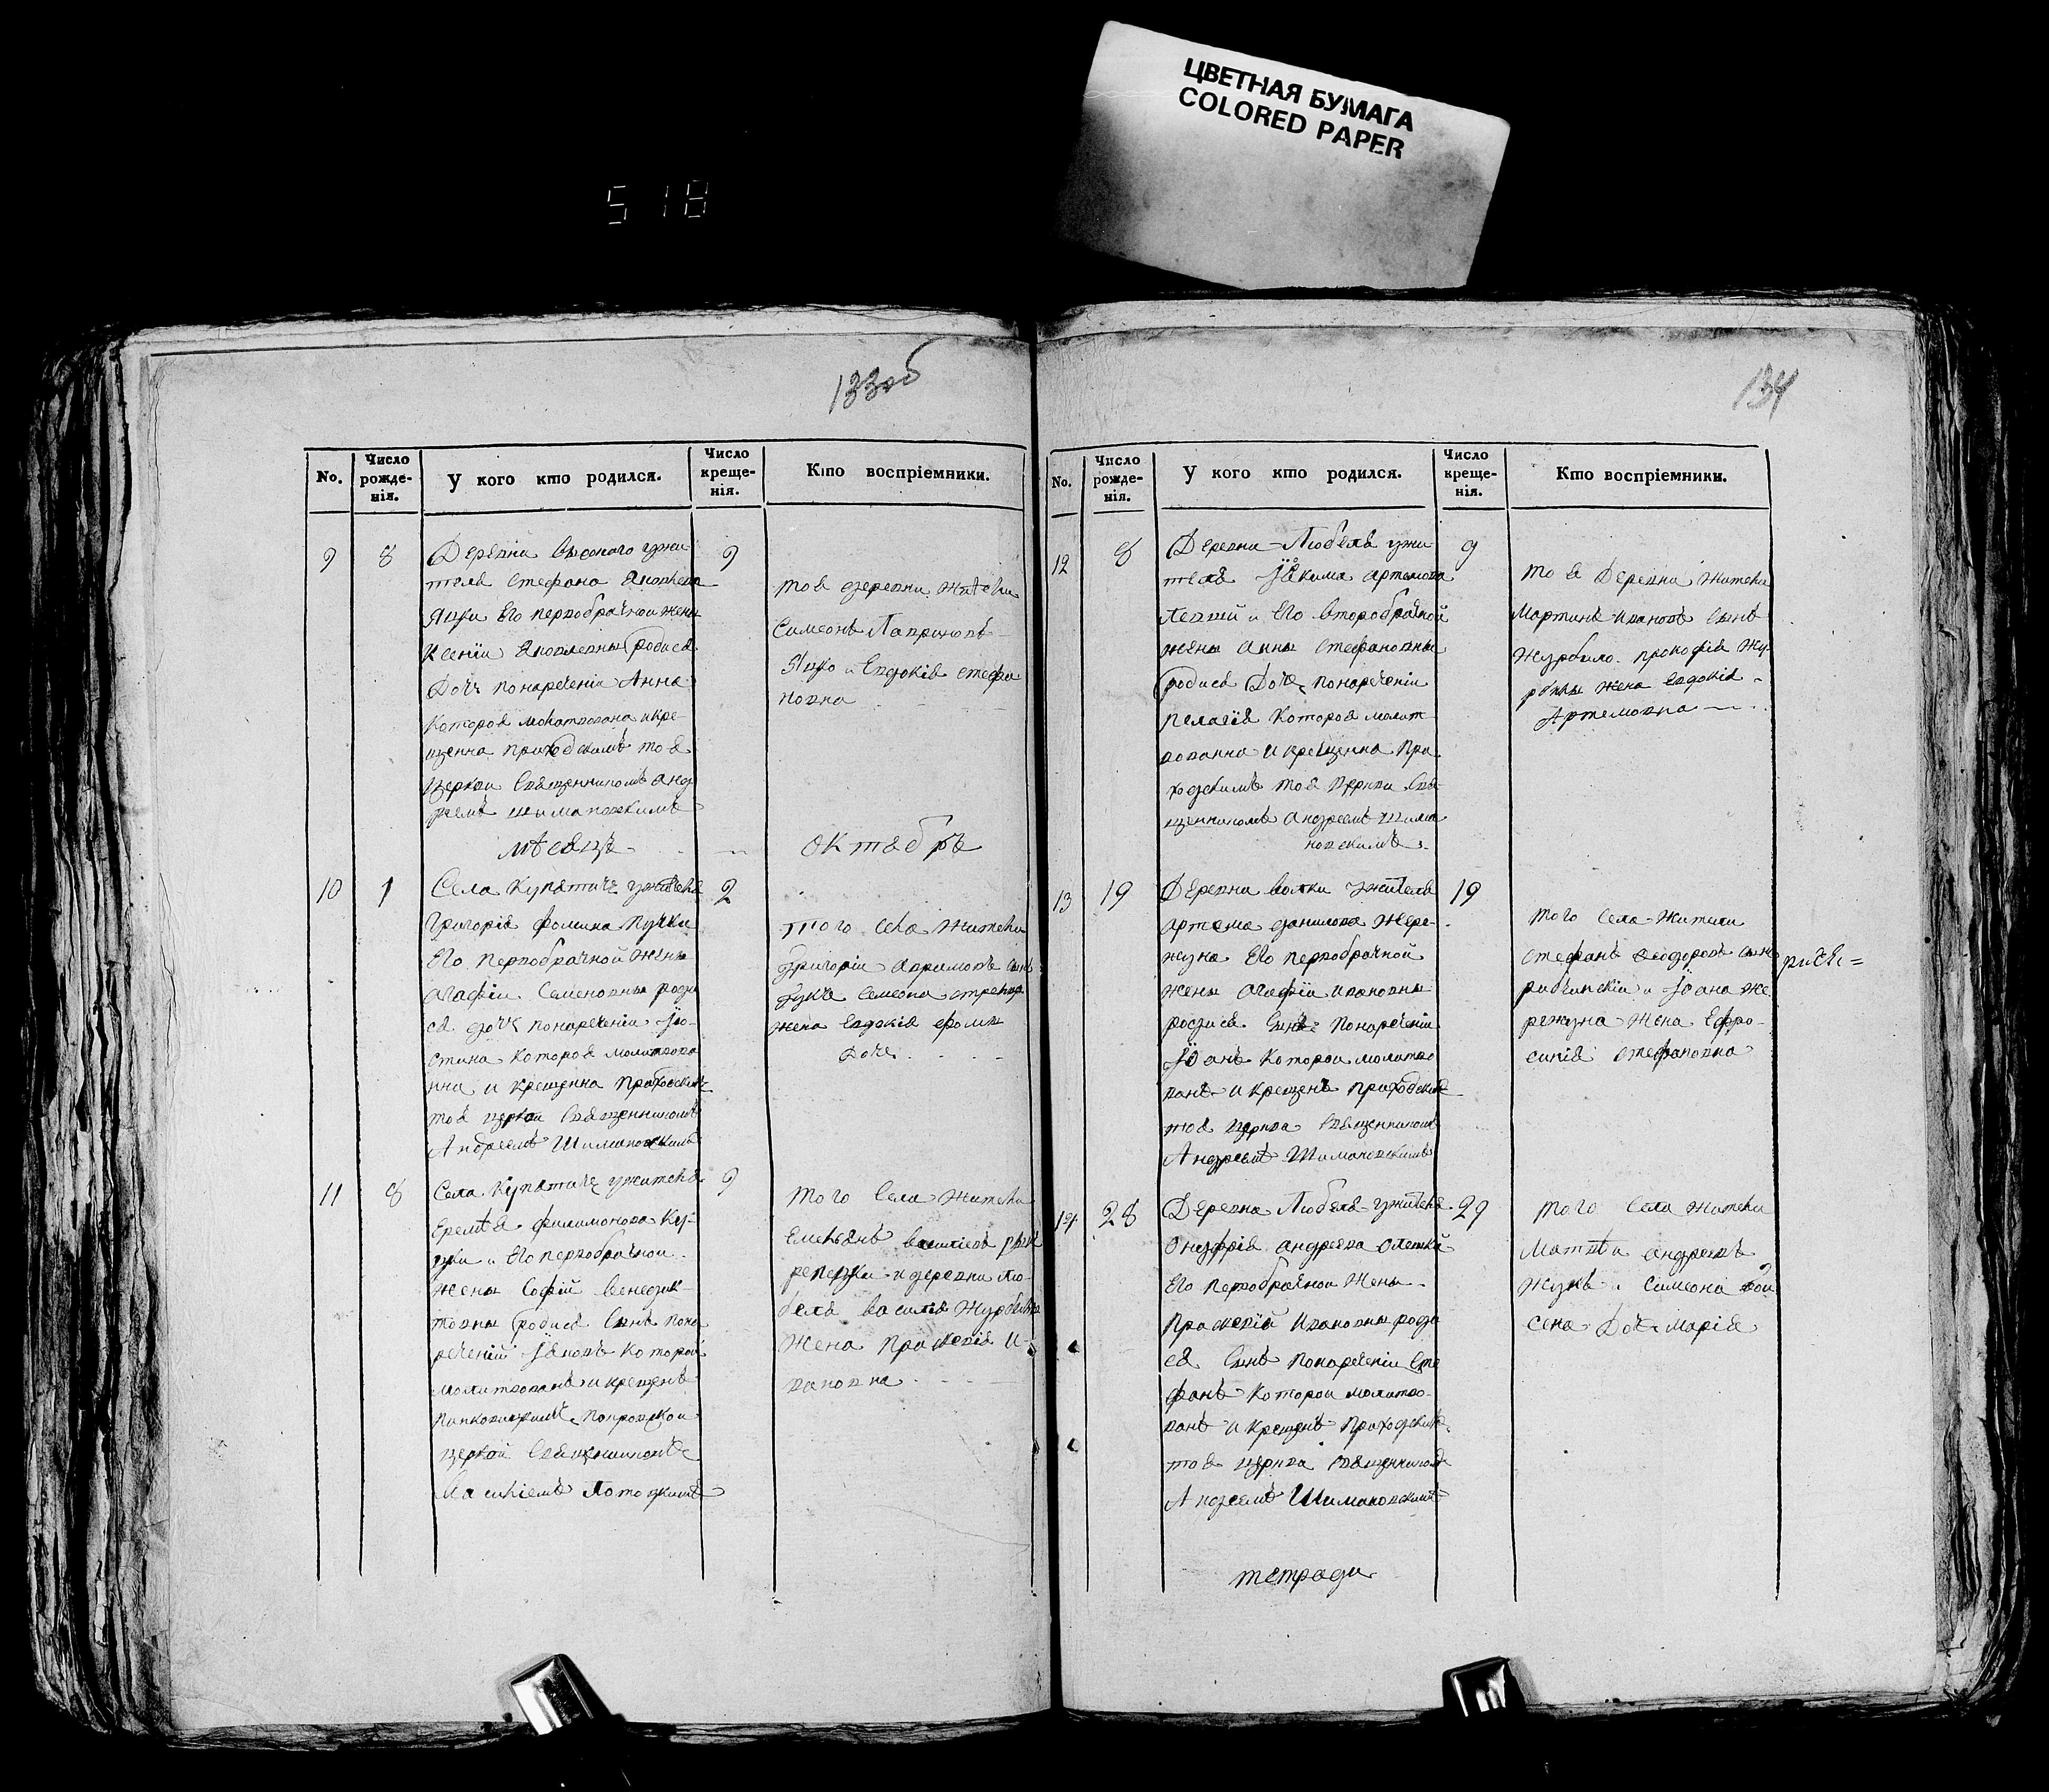 ЦВЕТНАЯ БУМАГА
COLORED PAPER
518
133об
No.
Число рожде-нія.
У кого кто родился.
Число креще-нія.
Кто воспріемники.
9 8 9
Деревни Высокого ужи
теля Стефана Яковлева
Яцки Его первобрачной жены
Ксеніи Яковлевны родися
Дочь понаречени Анна
которая молитвована и кре
щенна приходскимъ тоя
церкви Священникомъ Анд
реемъ Шимановскимъ
тоя деревни жители
Симеонъ
и Евдокія Стефа
новна
мѣсяцъ
октябрь
10 1 2
Села Купятичь ужителя
Григорія Фомина
Его первобрачной жены
Агафіи Семеновны роди
ся дочь понаречени Ію-
стина которая молитвова
нна и крещенна приходскимъ
тоя церкви Священникомъ
Андреемъ Шимановскимъ
того села жители
Григорій
Семеона
жена Евдокія
дочь
11 8 9
Села Купятичь ужителя
Еремѣя Филимонова Ку-
и Его первобрачной
жены Софій Венедик-
товны родися Сынъ пона
речений Іяковъ которой
молитвованъ и крещенъ
Покровской
церкви Священникомъ
того Села жители
Емельянъ Василіевъ
и деревни Лю-
беля Василія
жена Праксевія И-
вановна
134
No.
Число рожде-нія.
У кого кто родился.
Число креще-нія.
Кто воспріемники.
12 8 9
Деревни Любеля ужи
теля Іякима Артемова
и Его второбрачной
жены Анны Стефановны
родися Дочь понаречени
Пелагія которая молит
вованна и крещенна при
ходскимъ тоя церкви Свя
щенникомъ Андреемъ Шима
новскимъ
тоя Деревни жители
Мартинъ Ивановъ Сынъ
Журбило Прокофія Жу
жена Евдокія
Артемовна
13 19 19
Деревни Волки ужителя
Артема Данилова Жере-
жуна Его первобрачной
жены Агафіи Ивановны
родися Сынъ понаречени
Іоанъ которои молитво
ванъ и крещенъ приходскимъ
тоя церкви Священникомъ
Андреемъ Шимановскимъ
того Села жители
Стефанъ Феодоровъ Сынъ
и Іоана Же
режуна жена Ефро-
синія Стефановна
14 28 29
Деревни Любеля ужителя
Онуфрія Андреева
Его первобрачной жены
Праксевій Ивановны роди
ся Сынъ понаречени Сте
фанъ которои молитво
ванъ и крещенъ приходскимъ
тоя церкви Священникомъ
Андреемъ Шимановскимъ
того Села жители
Матвѣй Андреевъ
Жукъ и Симеона
Дочь Марія
тетради